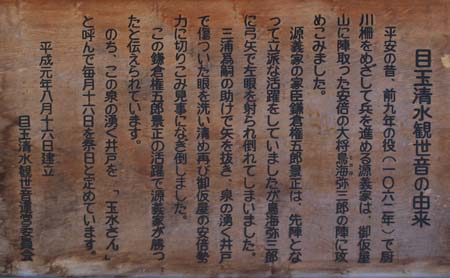 目玉清水観世音の由来
平安の昔、前九年の役(一〇六二年)で厨
川柵をめざして兵を進める源義家は、御仮屋
山に陣取った安倍の大将鳥海弥三郎の陣に攻
めこみました。
源義家の家臣鎌倉権五郎景正は、先陣とな
って立派な活躍をしていましたが鳥海弥三郎
に弓矢で左眼を射られ倒れてしまいました。
三浦為嗣の助けで矢を抜き、泉の湧く井戸
で傷ついた眼を洗い清め再び御仮屋の安倍勢
力に切りこみ見事になぎ倒しました。
この鎌倉権五郎景正の活躍で源義家が勝っ
たと伝えられています。
のち、この泉の湧く井戸を、「玉水さん」
と呼んで毎月十六日を祭日と定めています。
平成元年八月十六日建立
目玉清水観世音運営委員会